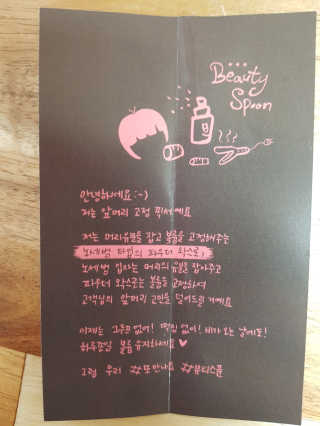 Beauty
Spoon
안녕하세요 :-)
저는 앞머리 고정 픽서예요
저는 머리유분을 잡고 볼륨을 고정해주는
노세범 타입의 파우더 왁스로,
노세범 입자는 머리의 유분을 잡아주고
파우더 왁스로는 볼륨을 고정하여
고객님의 앞머리 고민을 덜어드릴 거예요
이제는 그루프 없이! 떡짐 없이! 비가 오는 날에도!
하루종일 볼륨 유지하세요 ♥
그럼 우리 #또만나요 #뷰티스푼